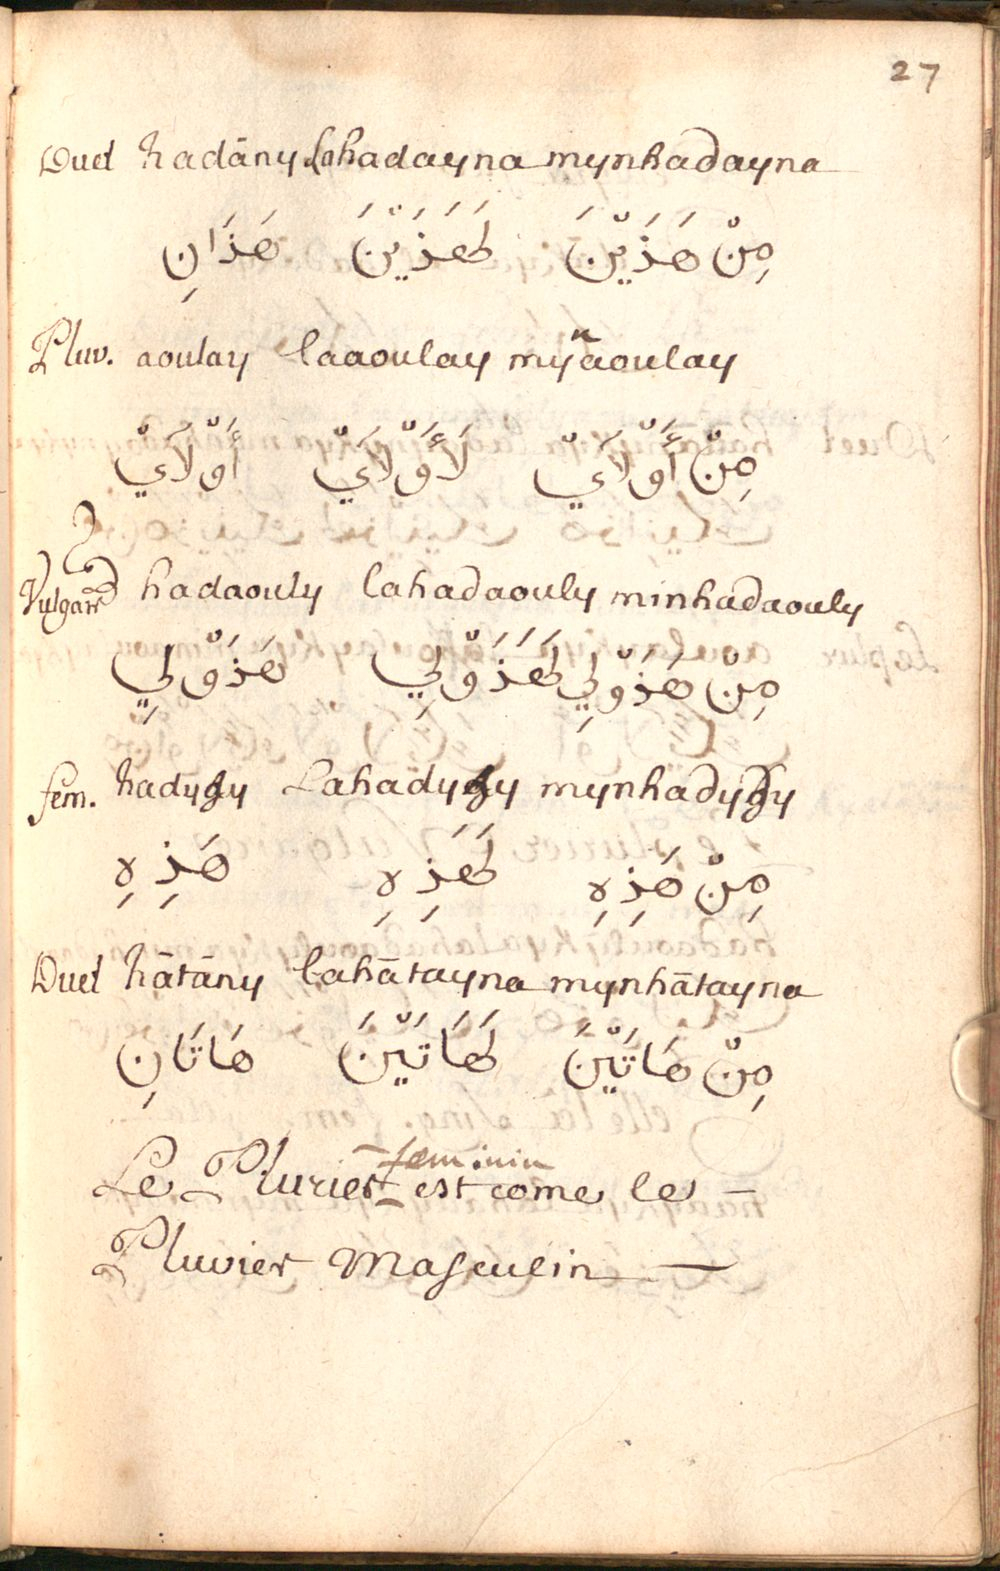 27
Duel hadāny lahadayna mynhadayna
مِنْ هَذَيْنَ لَهَذَيْنَ هَذَانِ
Pluv. aoulay laaoulay mynaoulay
مِنْ أَوْلَآيْ لَأَوْلَآيْ أَوْلَآيْ
Vulgare hadaouly lahadaouly minhadaouly
مِنْ هَذَوْلِي لَهَذَوْلِي هَذَوْلِي
fem. hadyhy Lahadyhy mynhadyhy
مِنْ هَذِهِ لَهَذِهِ هَذِهِ
Duel hātāny lahātayna mynhātayna
مِنْ هَاتَيْنَ لَهَاتَيْنَ هَاتَانِ
Le Plurier feminin est come le
Pluvier Masculin